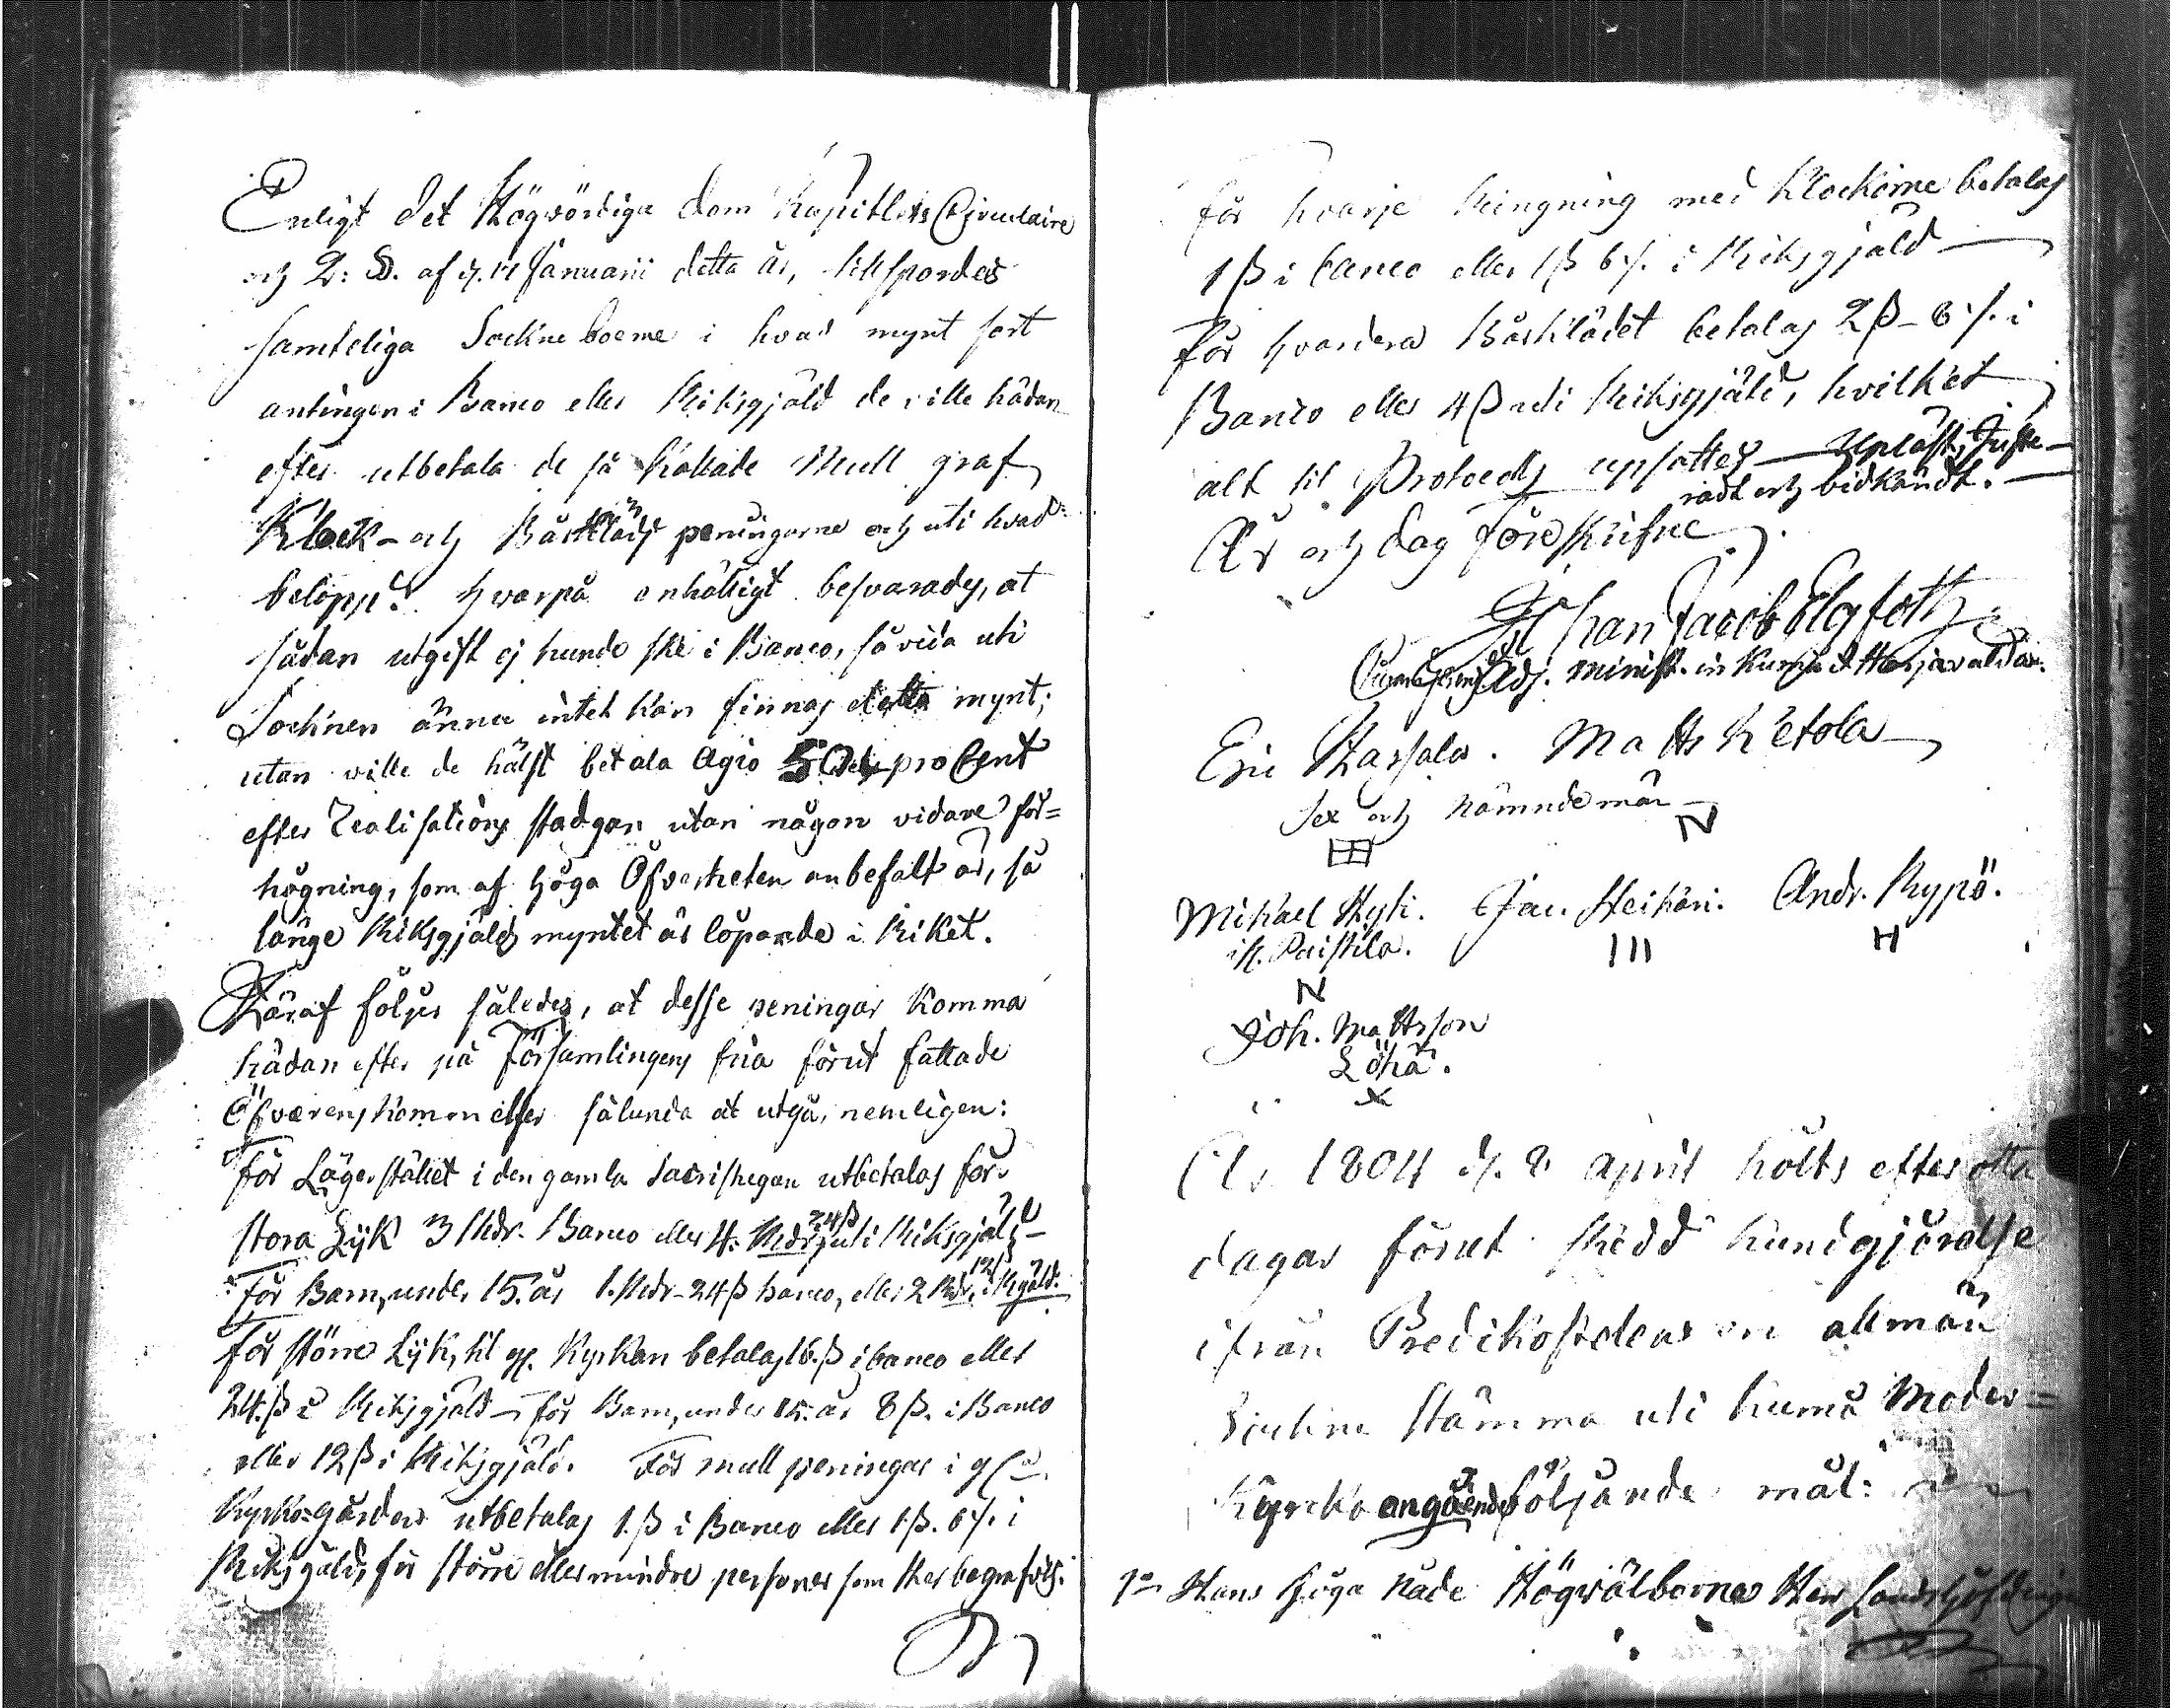 Enligt det Högvördiga Dom Kapitlets Circulaire
och 2: §. af d. 11 Januarii detta år, tillspordes
samteliga Sockne boerne i hvad mynt sort
antingen i Banco eller Riksgjäld de ville hädan
efter utbetala de så kallade Mull graf
Klock- och Bårkläds peningarne och uti hvad
belopp? Hvarpå enhälligt besvarades, at
sådan utgift ej kunde ske i Banco, så vida uti
Socknen ännu intet kan finnas detta mynt;
utan ville de hälst betala Agio 50 pro Cent
efter Realisations stadgan utan någon vidare för=
högning, som af höga Öfverheten anbefalt är, så
länge Riksgjälds myntet är löpande i Riket.
Häraf följer således, at desse peningar komma
hädan efter på Församlingens fria förut fattade
Öfverenskommelser sålunda at utgå, nemligen:
För Lägerstället i den gamla Sacristigan utbetalas för
stora Lijk 3 Rdr. Banco eller 4. Rdr 24 ß uti Riksgjäld -
För Barn, under 15. år 1. Rdr - 24 ß banco, eller 2 Rdr 12 ß i Rgäld.
För större Lijk, til gl. Kyrkan betalas 16. ß i banco eller
24. ß i Riksgjäld - för Barn, under 15. år 8 ß. i Banco
eller 12 ß i Riksgjäld. För mull peningar i gla
Kyrko=gården utbetalas 1. ß i Banco eller 1 ß. 6 /. i
Riksgäld, för större eller mindre personer som der begrafves.
för hvarje Ringning med Klockorne betalas
1 ß i banco eller 1 ß 6 /. i Riksgjäld
För hvardera Bårklädet betalas 2 ß - 8 /. i
Banco eller 4 ß uti Riksgjäld, hvilket
alt til Protocolls upsattes - Upläst, Juste-
radt och vidkändt. -
År och dag föreskrifne
Johan Jacob Elgfoth
Adj. Minist. in Kumo et Harjavalda.
Eric Harjala. Matts Ketola
Sex och Nämndemän
N
Mikael Hyti. Jac. Heikari. Andr. Rypö.
Paistila. III H
N
Joh. Mattsson
Löhä.
x
År 1804 d. 8 April hölts efter otta
dagar förut skedd kundgjörelse
ifrån Predikostolen en allmän
Sockne stämma uti Kumå Moder=
Kyrcko angående följande mål:
1o Hans Höga Nåde Högvälborne Herr Landshöfdinge